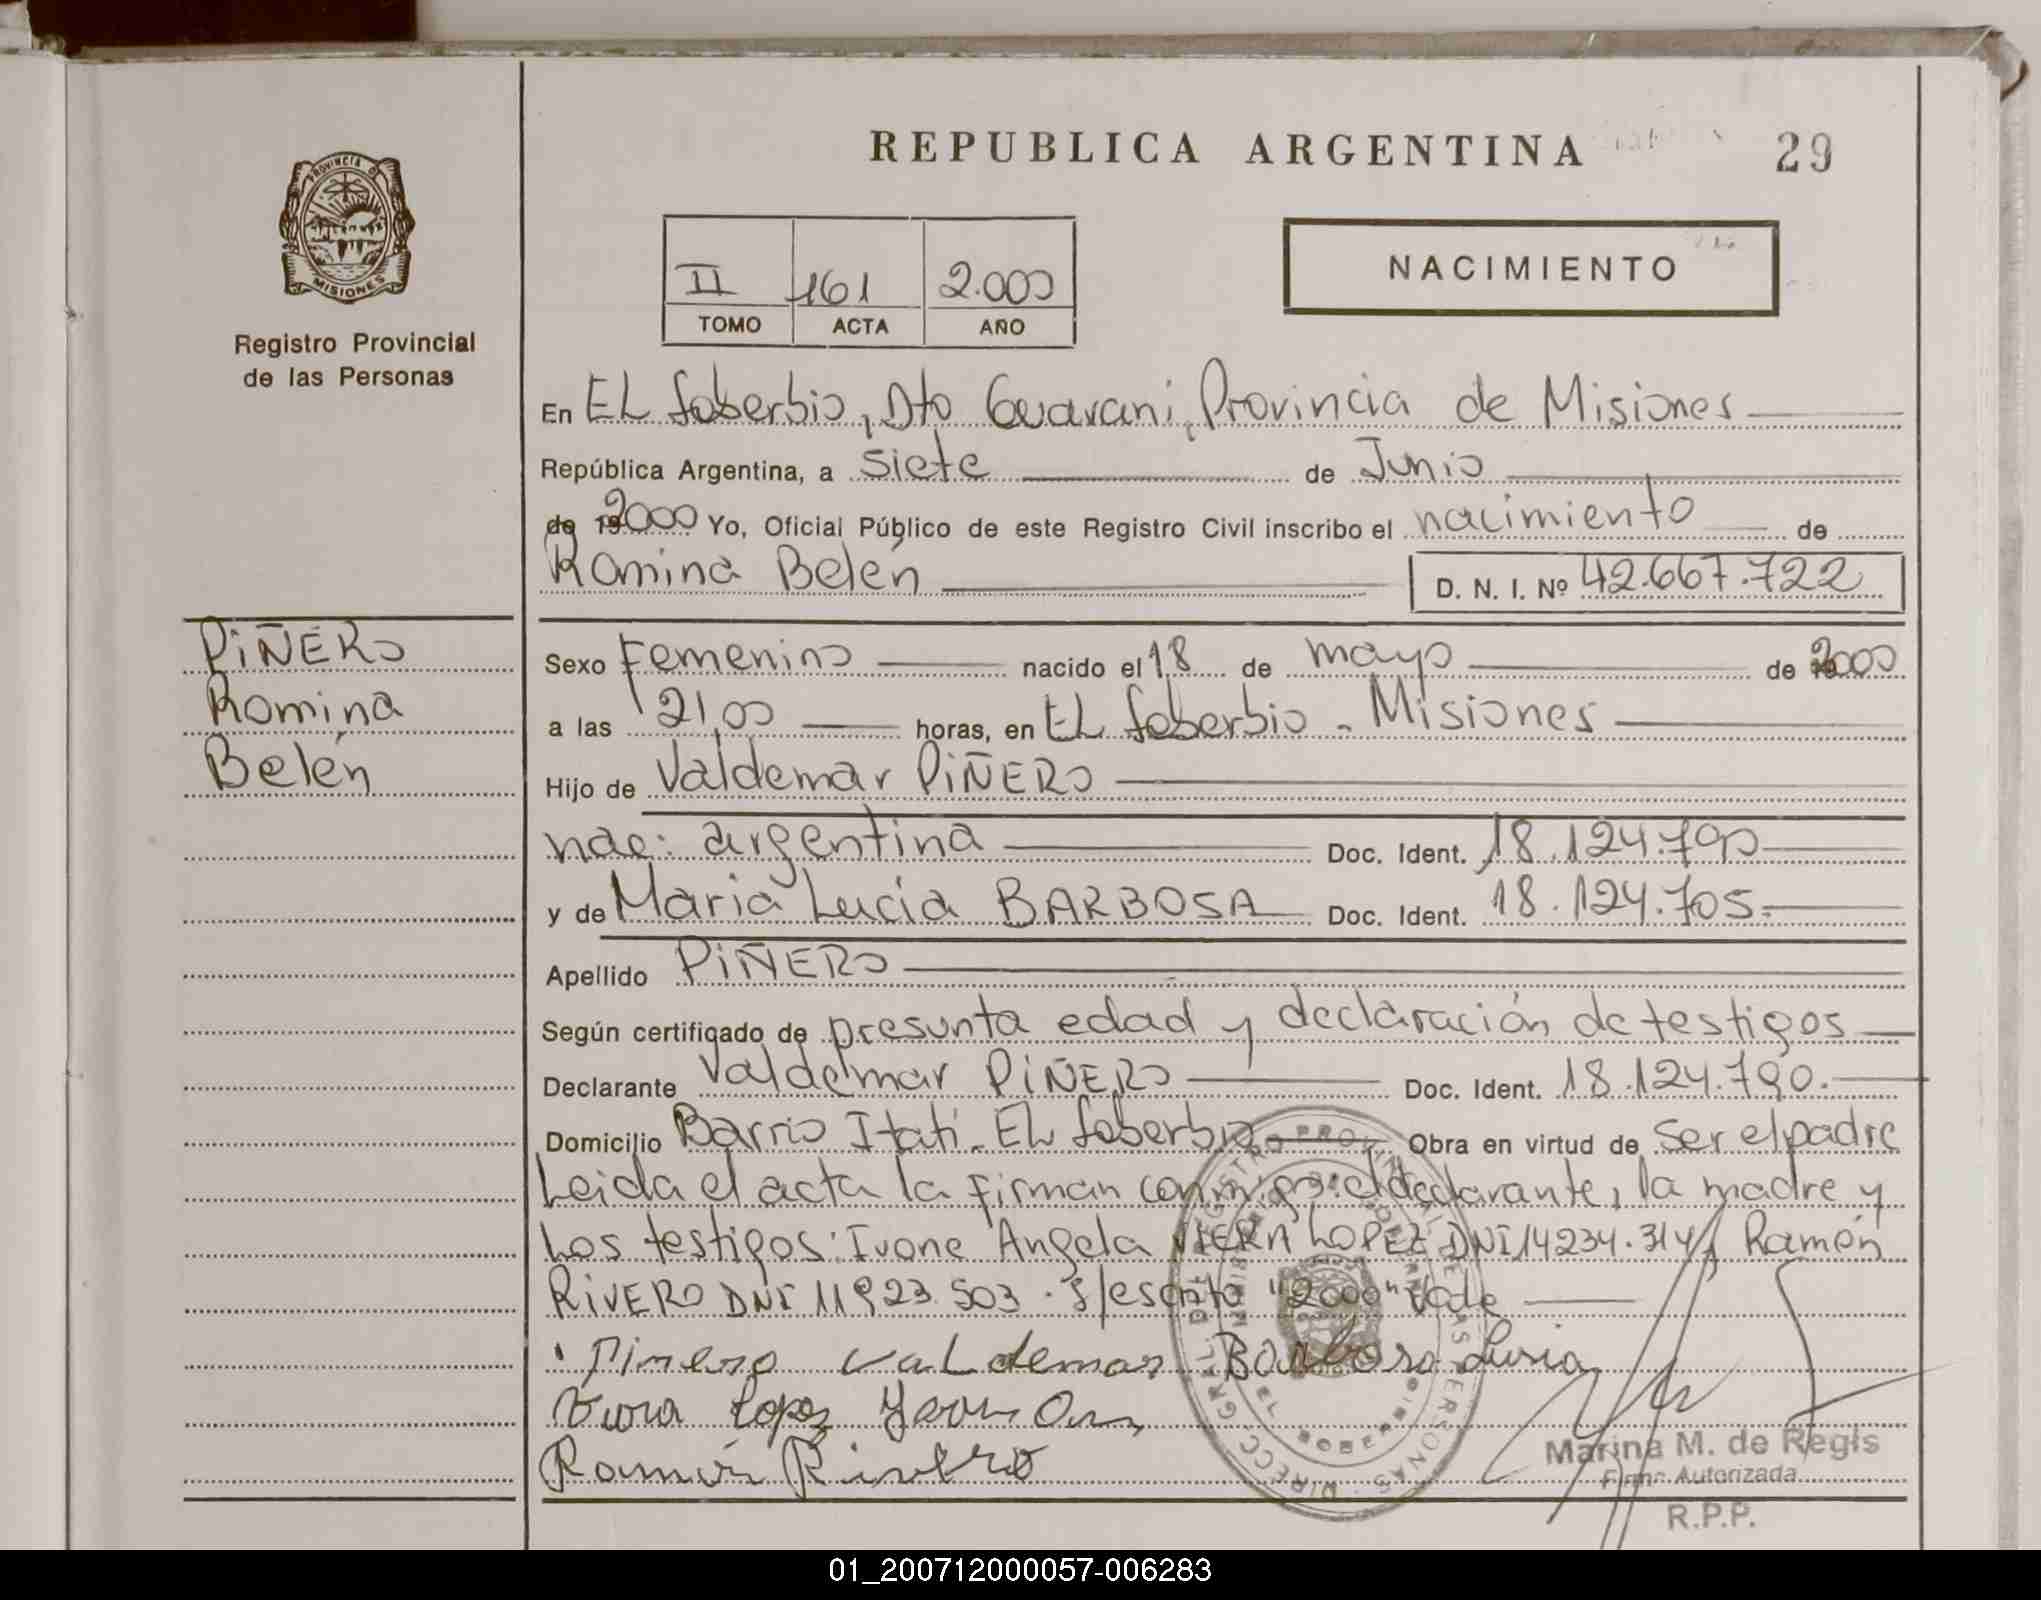 REPUBLICA ARGENTINA
29
PROVINCIA DE
MISIONES
Registro Provincial
de las Personas
II 161 2.000
TOMO ACTA AÑO
NACIMIENTO
En EL Soberbio, Dto Guaraní, Provincia de Misiones
República Argentina, a siete de Junio
de 2000 Yo, Oficial Público de este Registro Civil inscribo el nacimiento de
Romina Belén D. N. I. Nº 42.667.722
PiÑERO
Romina
Belén
Sexo Femenino nacido el 18 de mayo de 2000
a las 21,00 horas, en EL Soberbio - Misiones
Hijo de Valdemar PiÑERO
nac: argentina Doc. Ident. 18.124.790
y de Maria Lucia BARBOSA Doc. Ident. 18.124.705.
Apellido PiÑERO
Según certificado de presunta edad y declaración de testigos
Declarante Valdemar PiÑERO Doc. Ident. 18.124.790.
Domicilio Barrio Itatí - EL Soberbio Obra en virtud de ser el padre
Leida el acta la firman conmigo: el declarante, la madre y
los testigos: Ivone Angela LOPEZ DNI 14234.314, Ramón
RiVERO DNI 11923.503. s/escrito "2000" Vale
Piñero Valdemar Barbosa Lucia
Lopez
Ramón Rivero
Marina M. de Regis
Firma Autorizada
R.P.P.
01_200712000057-006283